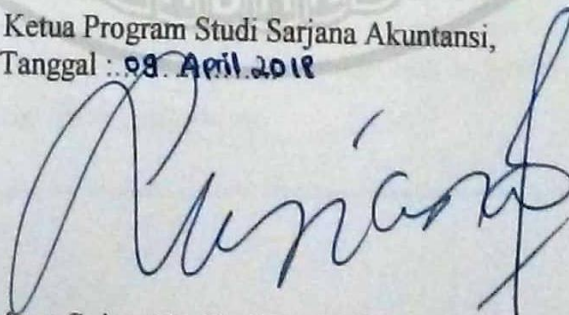 Ketua Program Studi Sarjana Akuntansi,
Tanggal : 09 April 2018